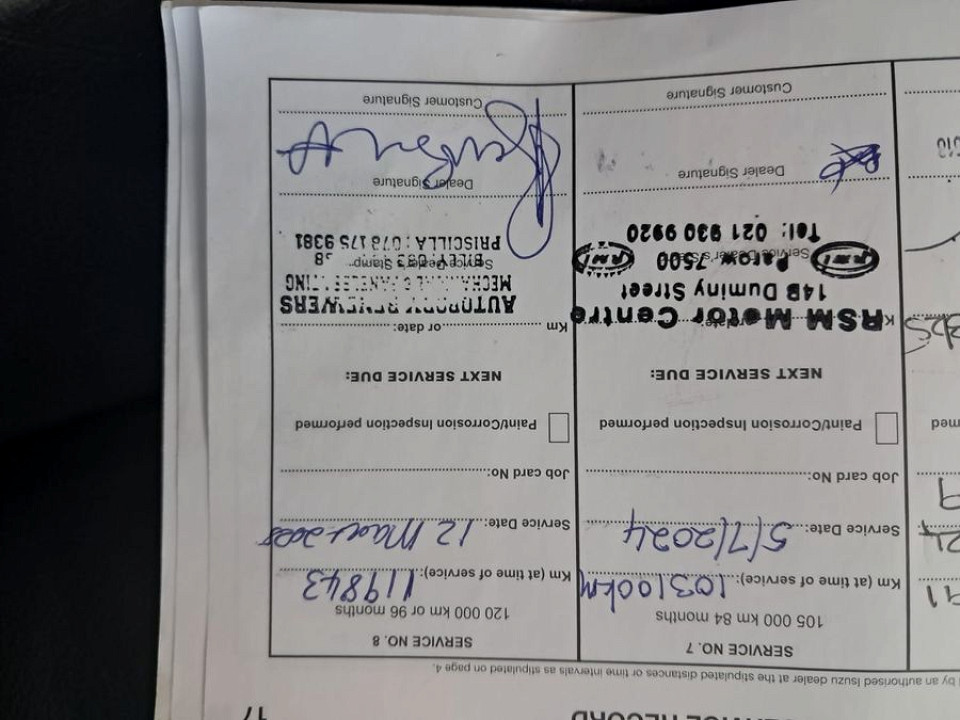 17
SERVICE RECORD
by an authorised Isuzu dealer at the stipulated distances or time intervals as stipulated on page 4.
SERVICE NO. 7
105 000 km 84 months
Km (at time of service): 103100km
Service Date: 5/7/2024
Job card No:
Paint/Corrosion Inspection performed
NEXT SERVICE DUE:
RSM Motor Centre
14B Duminy Street
Parow 7500
Tel: 021 930 9920
Dealer Signature
Customer Signature
SERVICE NO. 8
120 000 km or 96 months
Km (at time of service): 119843
Service Date: 12
Job card No:
Paint/Corrosion Inspection performed
NEXT SERVICE DUE:
Km or date:
AUTOBODY RENEWERS
Service Dealer's Stamp
PRISCILLA : 073 175 9381
Dealer Signature
Customer Signature